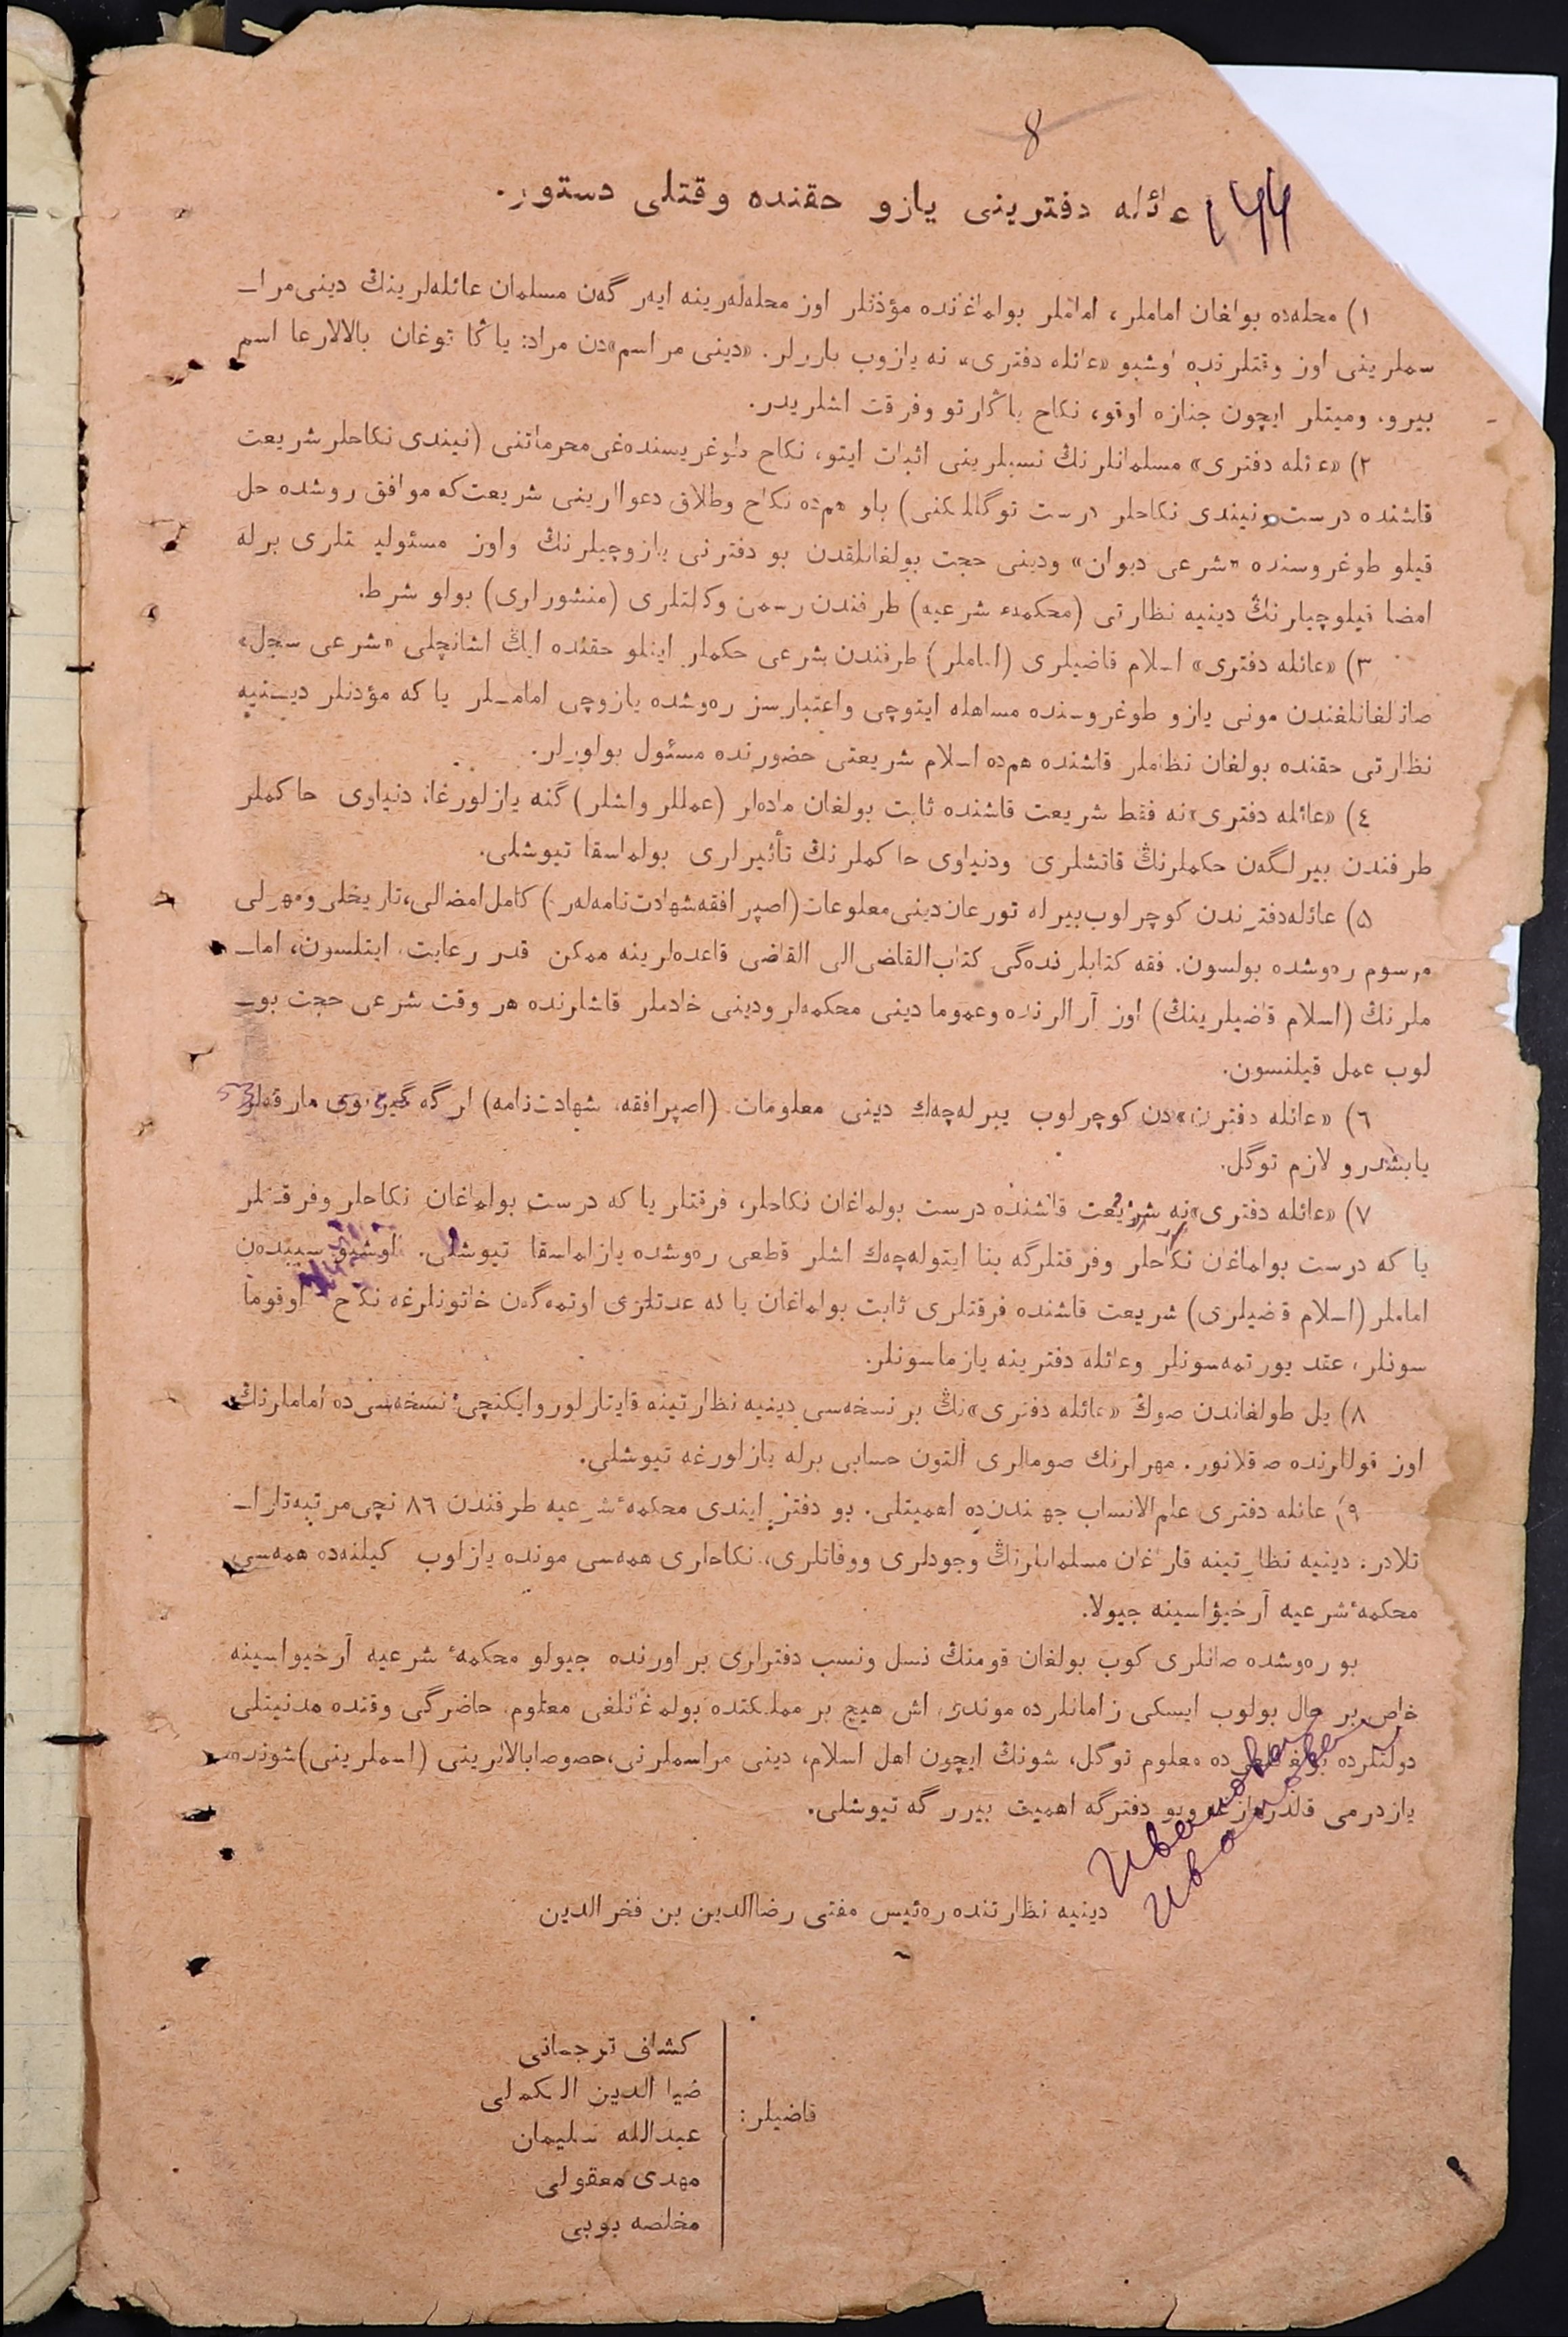 8
144
عائله دفترینی یازو حقنده وقتلی دستور.
١) محله‌ده بولغان اماملر، اماملر بولماغانده مؤذنلر اوز محله‌لەرینه ایەر گەن مسلمان عائله‌لرینڭ دینی مرا–
سملرینی اوز وقتلرنده اوشبو «عائله دفتری» نه یازوب بارورلر. «دینی مراسم»دن مراد: یاڭا توغان بالالارعا اسم
بیرو، ومیتلر ایچون جنازه اوقو، نکاح یاڭارتو وفرقت اشلریدر.
٢) «عائله دفتری» مسلمانلرنڭ نسبلرینی اثبات ایتو، نکاح طوغریسنده‌غی محرماتنی (نیندی نکاحلر شریعت
قاشنده درست و نیندی نکاحلر درست توگللکنی) بلو هم‌ده نکاح وطلاق دعوالرینی شریعت‌که موافق روشده حل
قیلو طوغروسنده «شرعی دیوان» ودینی حجت بولغانلقدن بو دفترنی یازوچیلرنڭ واوز مسئولیتلری برله
امضا قیلوچیلرنڭ دینیه نظارتی (محکمهء شرعیه) طرفندن رسمی وکالتلری (منشورلری) بولو شرط.
٣) «عائله دفتری» اسلام قاضیلری (اماملر) طرفندن شرعی حکملر ایتلو حقنده ایڭ اشانچلی «شرعی سجل»
صانلغانلغندن مونی یازو طوغروسنده مساهله ایتوچی واعتبارسز ره‌وشده یازوچی اماملر یا که مؤذنلر دینیه
نظارتی حقنده بولغان نظاملر قاشنده هم‌ده اسلام شریعتی حضورنده مسئول بولورلر.
٤) «عائله دفتری»نه فقط شریعت قاشنده ثابت بولغان ماده‌لر (عمللر واشلر) گنه یازلورغا، دنیاوی حاکملر
طرفندن بیرلگەن حکملرنڭ قاتشلری ودنیاوی حاکملرنڭ تأثیرلری بولماسقا تیوشلی.
۵) عائله دفترندن کوچرلوب بیرله تورعان دینی معلومات (اصپرافقه شهادت‌نامه‌لەر) کامل امضالی، تاریخلی ومهرلی
مرسوم ره‌وشده بولسون. فقه کتابلرنده‌گی کتاب القاضی الی القاضی قاعده‌لرینه ممکن قدر رعایت ایتلسون، اما–
ملرنڭ (اسلام قاضیلرینڭ) اوز آرالرنده وعموما دینی محکمه‌لر ودینی خادملر قاشلرنده هر وقت شرعی حجت بو–
لوب عمل قیلنسون.
٦) «عائله دفترن»دن کوچرلوب بیرله‌چەك دینی معلومات (اصپرافقه، شهادت‌نامه) لرگه مارقەلر
یابشدرو لازم توگل.
٧) «عائله دفتری»نه شریعت قاشنده درست بولماغان نکاحلر، فرقتلر یا که درست بولماغان نکاحلر وفرقتلر
یا که درست بولماغان نکاحلر وفرقتلرگه بنا ایتوله‌چەك اشلر قطعی ره‌وشده یازلماسقا تیوشلی. اوشبو سببدەن
اماملر (اسلام قاضیلری) شریعت قاشنده فرقتلری ثابت بولماغان یا که عدتلری اوتمەگەن خاتونلرغه نکاح اوقوما
سونلر، عقد یورتمه‌سونلر وعائله دفترینه یازماسونلر.
٨) یل طولغاندن صوڭ «عائله دفتری»نڭ بر نسخه‌سی دینیه نظارتینه قایتارلور وایکنچی نسخه‌سی‌ده اماملرنڭ
اوز قوللرنده صقلانور. مهرلرنڭ صومالری آلتون حسابی برله یازلورغه تیوشلی.
٩) عائله دفتری علم الانساب جهتندن‌ده اهمیتلی. بو دفتر ایندی محکمهٔ شرعیه طرفندن ٨٦ نچی مرتبه تارا–
تلادر. دینیه نظارتینه قارغان مسلمانلرنڭ وجودلری ووفاتلری، نکاحلری همه‌سی مونده یازلوب کیلنه‌ده همه‌سی
محکمهٔ شرعیه آرخیواسینه جیولا.
بو ره‌وشده صانلری کوب بولغان قومنڭ نسل ونسب دفترلری بر اورنده جیولو محکمهٔ شرعیه آرخیواسینه
خاص بر حال بولوب ایسکی زامانلرده موندی اش هیچ بر مملکتده بولمغانلغی معلوم. حاضرگی وقتده مدنیتلی
دولتلرده بولغانلغی‌ده معلوم توگل، شونڭ ایچون اهل اسلام، دینی مراسملرنی، خصوصا بالالرینی (اسملرینی) شونده
یازدرمی قالدرمازغه وبو دفترگه اهمیت بیررگه تیوشلی.
دینیه نظارتنده ره‌ئیس مفتی رضاالدین بن فخرالدین
قاضیلر:
کشاف ترجمانی
ضیا الدین الکمالی
عبدالله سلیمان
مهدی معقولی
مخلصه بوبی